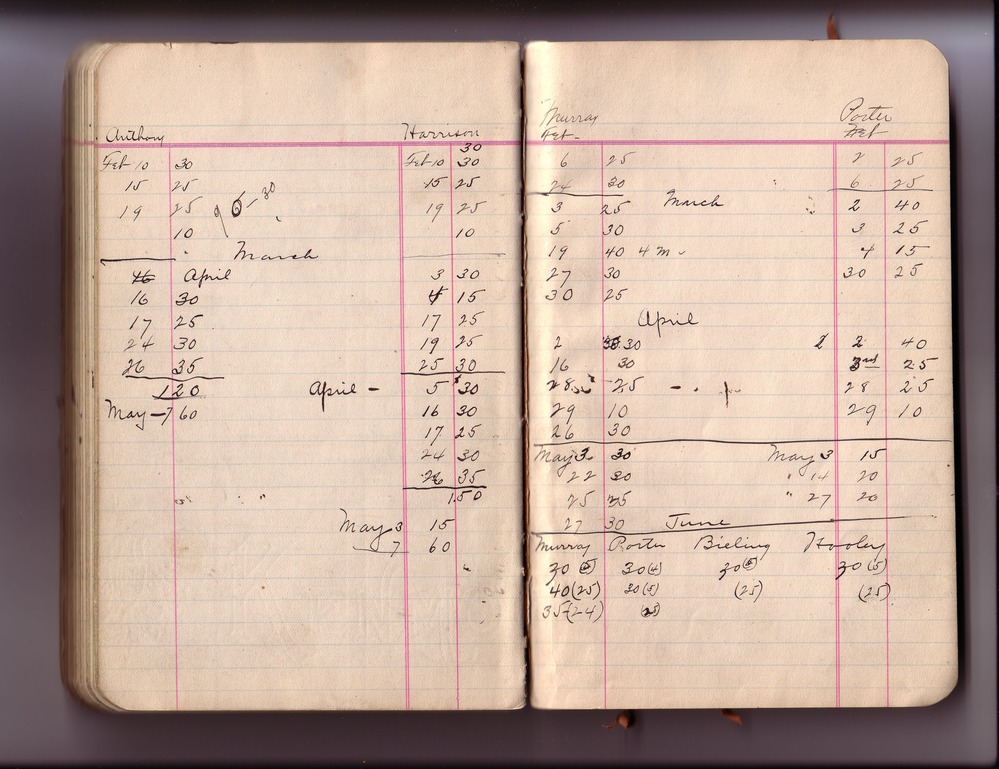 Anthony Harrison
30
Feb 10 30 Feb 10 30
15 25 15 25
19 25 19 25
10 10
March
16 April 3 30
16 30 4 15
17 25 17 25
24 30 19 25
26 35 25 30
120 April - 5 30
May - 7 60 16 30
17 25
24 30
26 35
150
May 3 15
7 60
Murray Porter
Feb - Feb
6 25 2 25
24 30 6 25
March
3 25 2 40
5 30 3 25
19 40 4 m 4 15
27 30 30 25
30 25
April
2 30 2 2 40
16 30 3rd 25
28 25 28 25
29 10 29 10
26 30
May 3 30 May 3 15
22 30 " 14 20
25 25 " 27 20
27 30 June
Murray Porter Bieling Hooley
30 (5) 30 (4) 30 (5) 30 (5)
40 (25) 30 (5) (25) (25)
35 (24) (25)